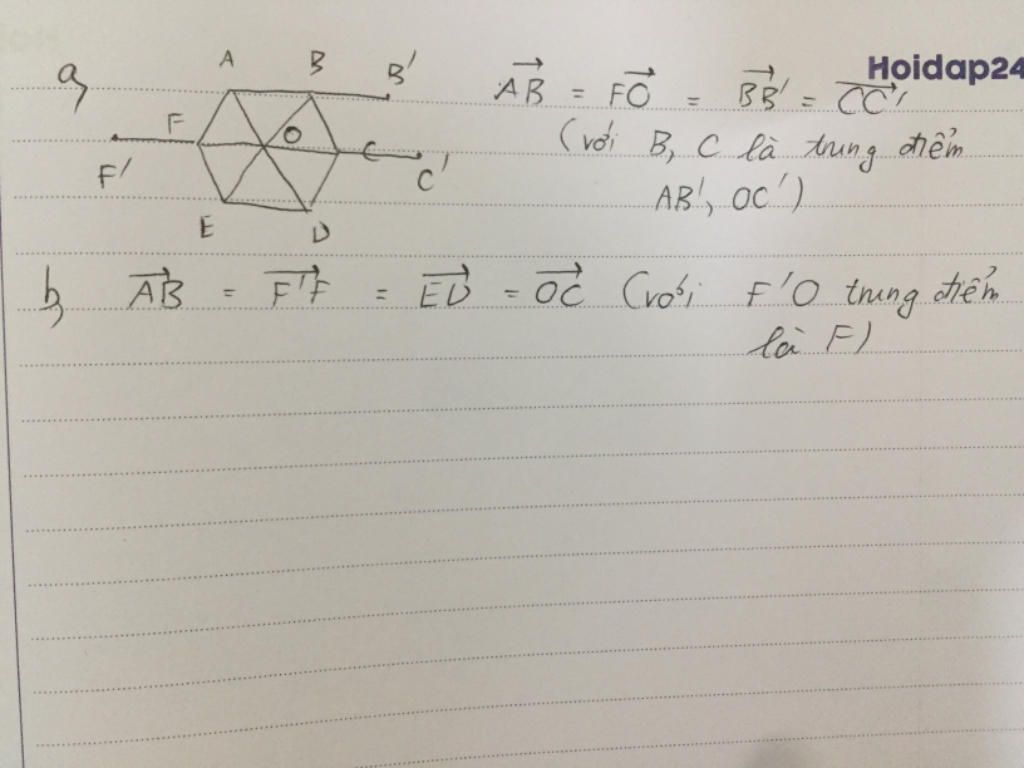 Hoidap24
a, A B B' $\overrightarrow{AB}$ = $\overrightarrow{FO}$ = $\overrightarrow{BB'}$ = $\overrightarrow{CC'}$
F O C (với B, C là trung điểm
F' C' AB', OC')
E D
b, $\overrightarrow{AB}$ = $\overrightarrow{F'F}$ = $\overrightarrow{ED}$ = $\overrightarrow{OC}$ (với F'O trung điểm
là F)